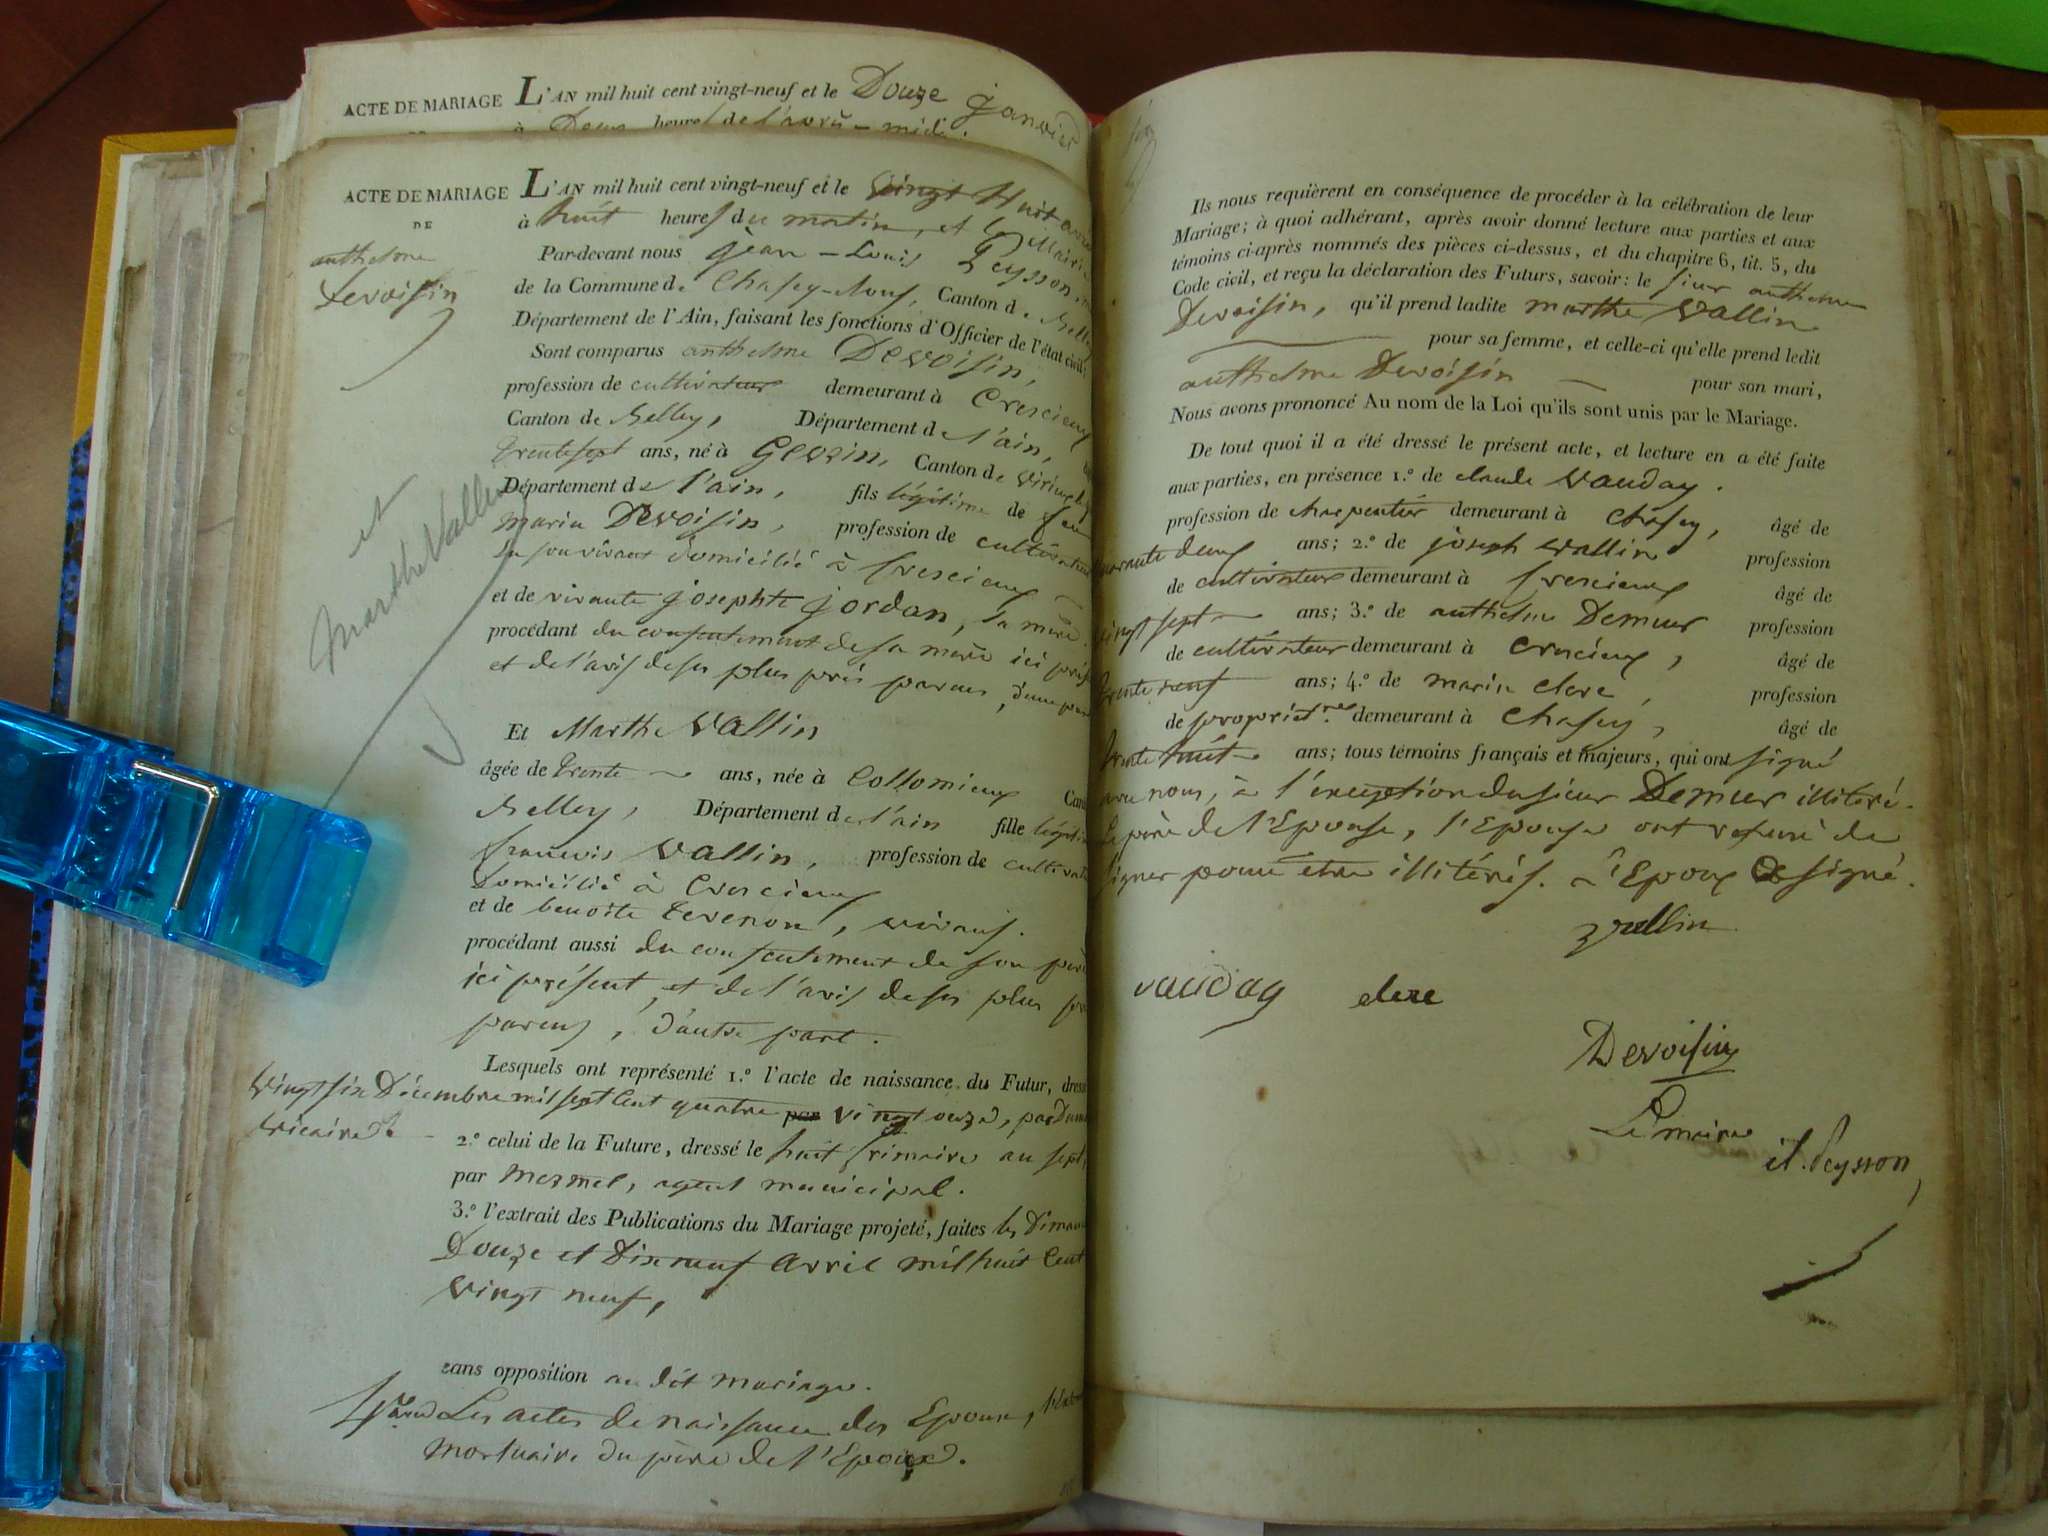 ACTE DE MARIAGE L'AN mil huit cent vingt-neuf et le Douze janvier
à Deux heures de l'après-midi.
ACTE DE MARIAGE
DE
anthelme
Devoisin
et
Marthe Vallin
L'AN mil huit cent vingt-neuf et le vingt Huit
à huit heures du matin, et
Par-devant nous jean-Louis Peysson,
de la Commune de Chasey-
Canton de
Département de l'Ain, faisant les fonctions d'Officier de l'état civil;
Sont comparus anthelme Devoisin,
profession de cultivateur demeurant à Crescieux
Canton de Belley, Département de l'ain,
trentesept ans, né à Gevrin, Canton de
Département de l'ain, fils légitime de feu
marin Devoisin, profession de cultivateur
En son vivant domicilié à Crescieux
et de vivante josephte jordan, sa mère
procédant du consentement de sa mère ici
et de l'avis de ses plus près parens, d'une part
Et Marthe Vallin
âgée de trente ans, née à Collomieux
Belley, Département de l'ain fille
françois Vallin, profession de
Domicilié à Crescieux
et de benoite tevenon, vivans.
procédant aussi du consentement de son père
ici présent, et de l'avis de ses plus
parens, d'autre part.
Lesquels ont représenté 1.º l'acte de naissance du Futur,
vingt six Décembre mil sept Cent quatre par vingt onze,
vicaire
2.º celui de la Future, dressé le huit frimaire an sept,
par mermet, agent municipal.
3.º l'extrait des Publications du Mariage projeté, faites les
Douze et Dix neuf avril mil huit Cent
vingt neuf,
sans opposition au dit mariage.
Les actes de naissance des Epoux,
mortuaire du père de l'Epoux.
Ils nous requièrent en conséquence de procéder à la célébration de leur
Mariage; à quoi adhérant, après avoir donné lecture aux parties et aux
témoins ci-après nommés des pièces ci-dessus, et du chapitre 6, tit. 5, du
Code civil, et reçu la déclaration des Futurs, savoir: le sieur anthelme
Devoisin, qu'il prend ladite marthe Vallin
pour sa femme, et celle-ci qu'elle prend ledit
anthelme Devoisin pour son mari,
Nous avons prononcé Au nom de la Loi qu'ils sont unis par le Mariage.
De tout quoi il a été dressé le présent acte, et lecture en a été faite
aux parties, en présence 1.º de claude Vauday.
profession de charpentier demeurant à Chasey, âgé de
quarante deux ans; 2.º de joseph Vallin profession
de cultivateur demeurant à Crescieux âgé de
vingt sept ans; 3.º de anthelme Demeur profession
de cultivateur demeurant à Crescieux, âgé de
trente neuf ans; 4.º de marin clerc, profession
de propriét.re demeurant à Chasey, âgé de
trente huit ans; tous témoins français et majeurs, qui ont signé
avec nous, à l'exception du sieur Demeur illitéré.
Le père de l'Epouse, l'Epouse ont refusé de
signer pour être illitérés. L'Epoux a signé.
vallin
vauday clerc
Devoisin
Le maire
Peysson